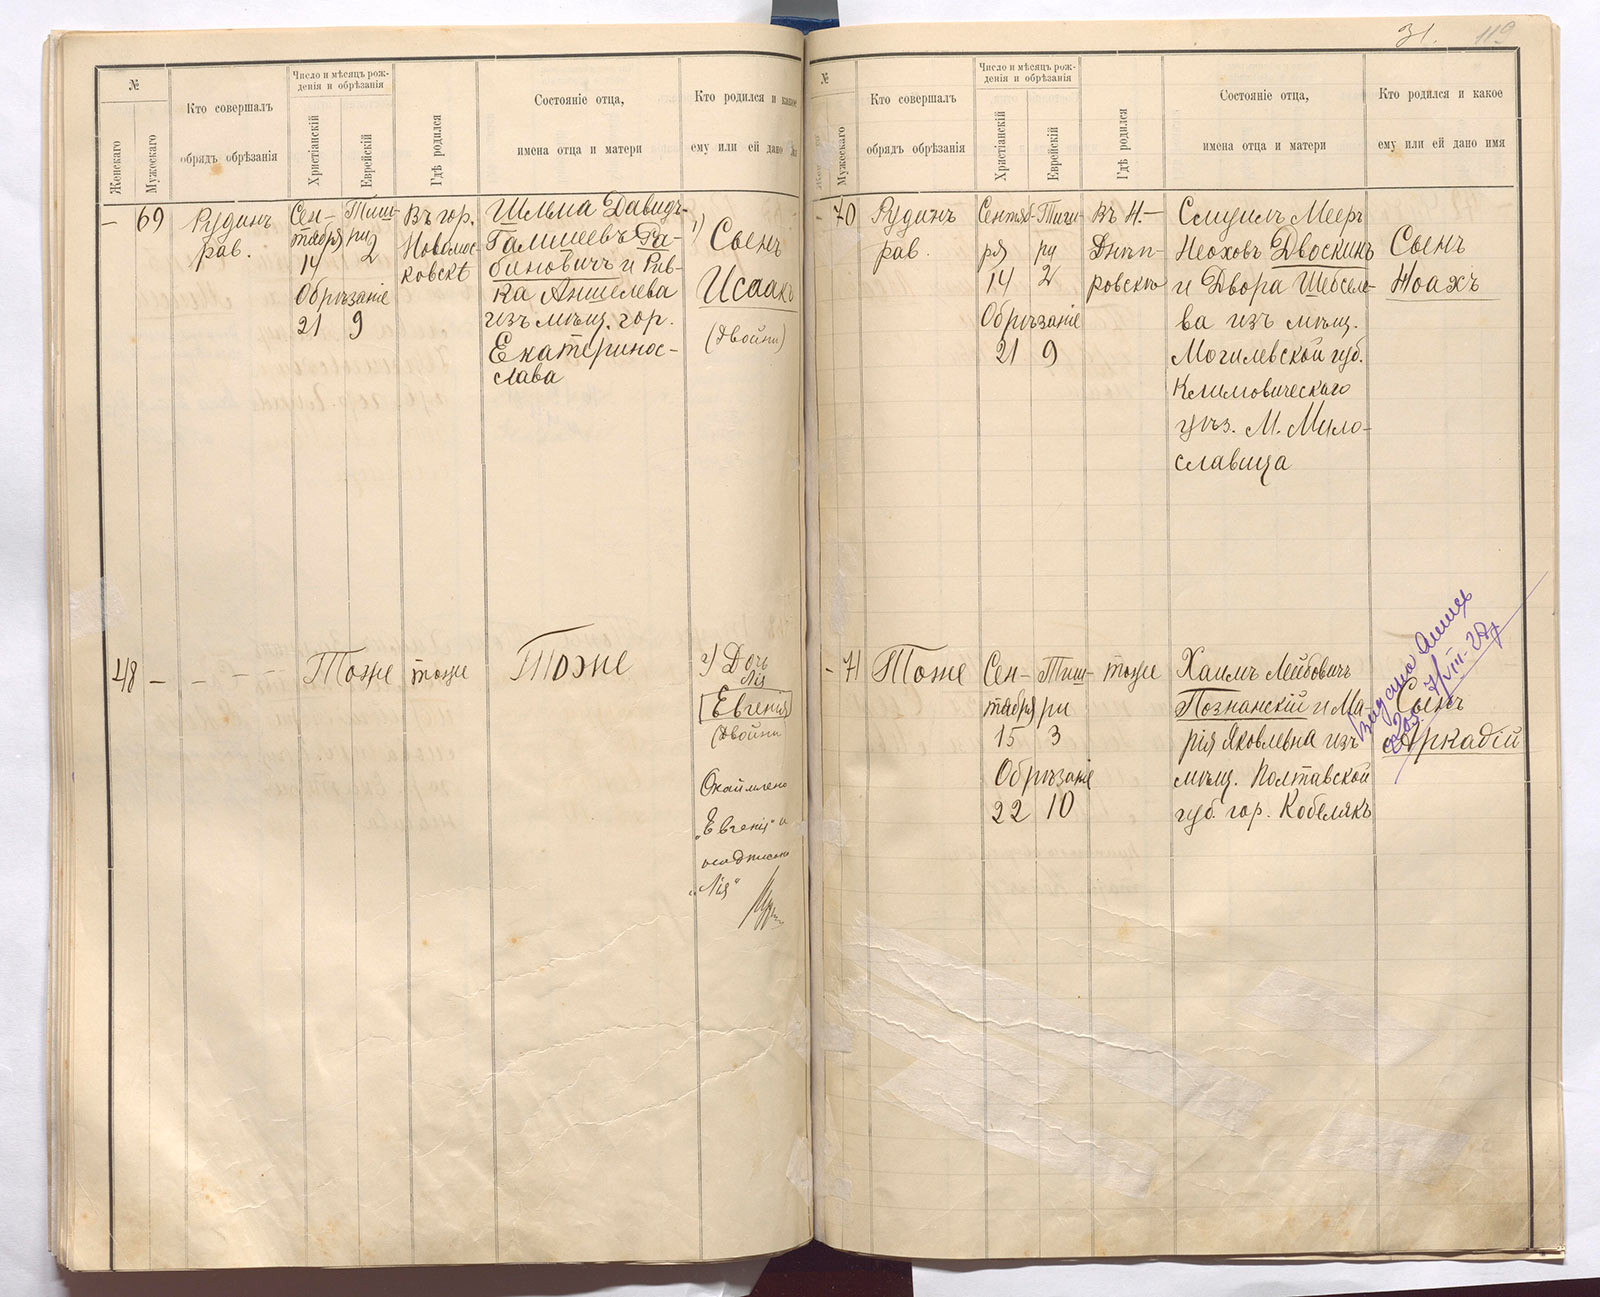 31.
119
№
Женскаго
Мужескаго
Кто совершалъ
обрядъ обрѣзанія
Число и мѣсяцъ рож-
денія и обрѣзанія
Христіанскій
Еврейскій
Гдѣ родился
Состояніе отца,
имена отца и матери
Кто родился и какое
ему или ей дано
– 69
Рудинъ
рав.
Сен-
тября
14
Обрѣзаніе
21
Тиш-
ри
2
9
Въ гор.
Новомос-
ковскѣ
Шльма Давидъ-
Ра-
биновичъ и Рив-
ка Аншелева
изъ мѣщ. гор.
Екатеринос-
лава
1)
Сынъ
Исаакъ
(двойни)
48 – – – –
Тоже
тоже
Тоже
2) Дочь
Лія
Евгенія
(двойни
Окаймлено
„Евгенія" и
надписано
„Лія"
№
Мужескаго
Кто совершалъ
обрядъ обрѣзанія
Число и мѣсяцъ рож-
денія и обрѣзанія
Христіанскій
Еврейскій
Гдѣ родился
Состояніе отца,
имена отца и матери
Кто родился и какое
ему или ей дано имя
– 70
Рудинъ
рав.
Сентяб-
ря
14
Обрѣзаніе
21
Тиш-
ри
2
9
Въ Н.–
Днѣп-
ровскѣ
Смуилъ Мееръ
Неоховъ Двоскинъ
и Двора Шебселе-
ва изъ мѣщ.
Могилевской губ.
Климовическаго
уѣз. М. Мило-
славица
Сынъ
Ноахъ
– 71
Тоже
Сен-
тября
15
Обрѣзаніе
22
Тиш-
ри
3
10
тоже
Хаимъ Лейбовичъ
Познанскій и Ма-
рія Яковлевна изъ
мѣщ. Полтавской
губ. гор. Кобелякъ
Сынъ
Аркадій
выдана
7/VIII-27